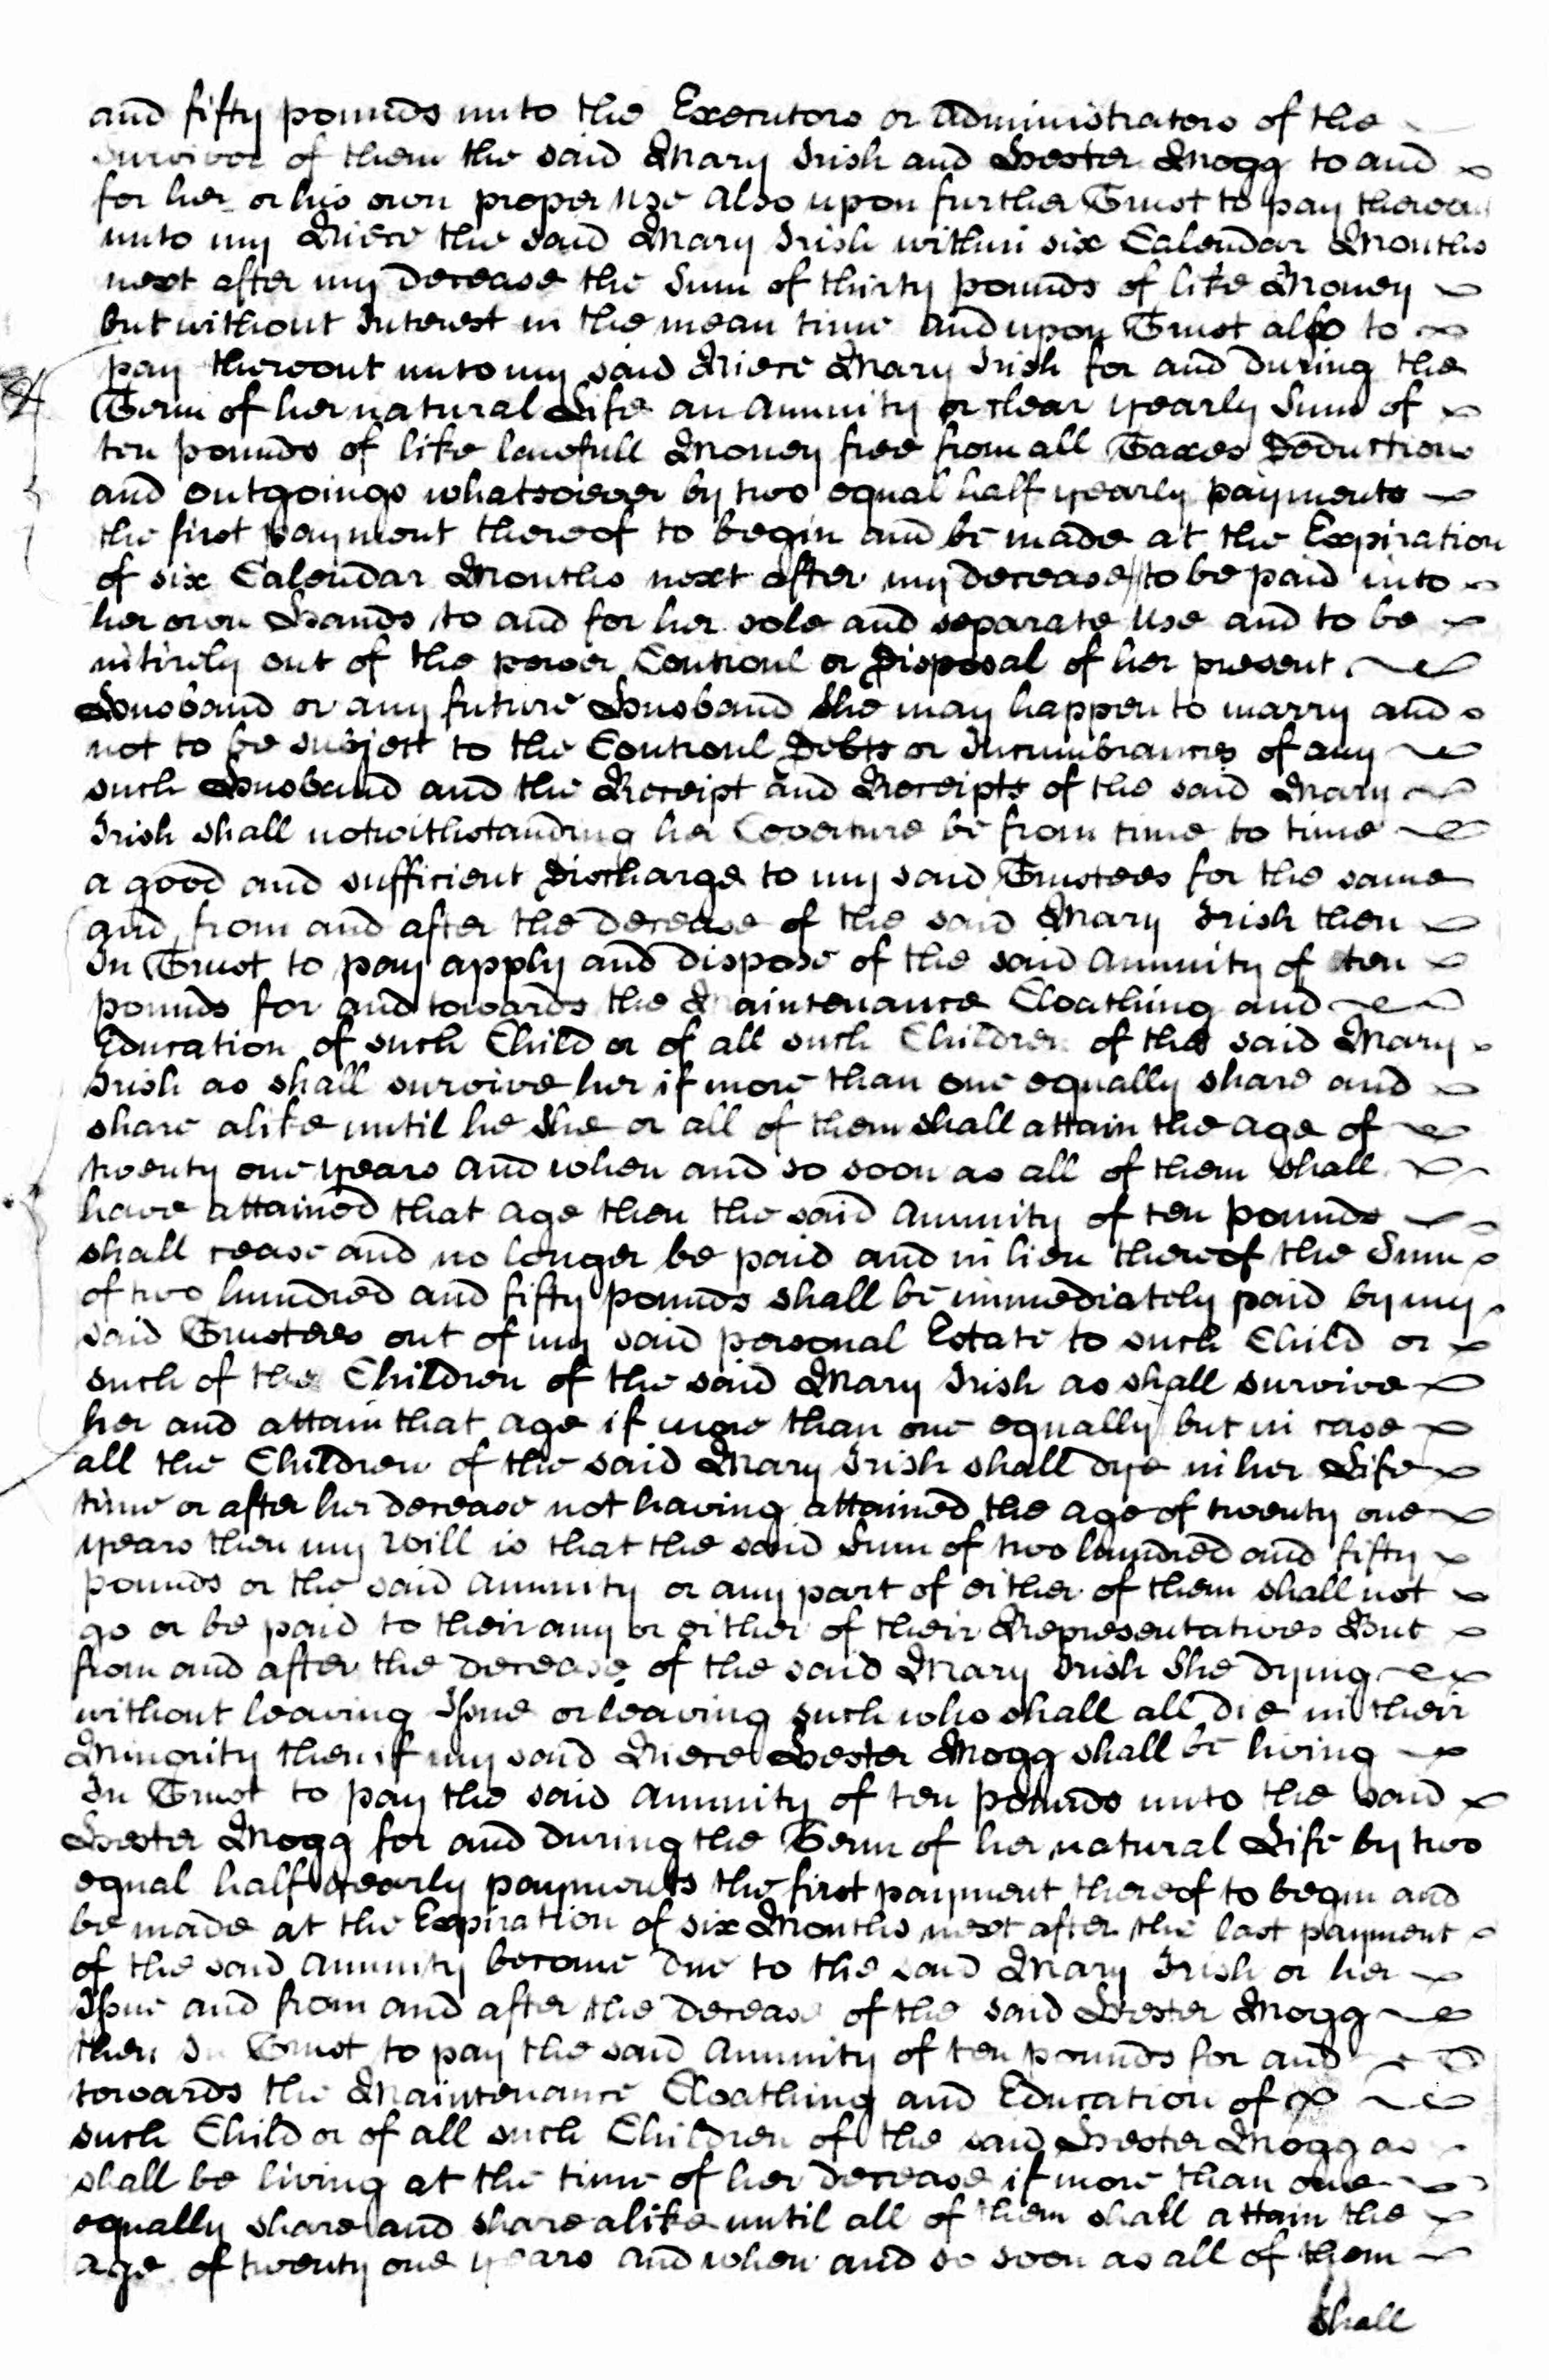 and fifty pounds unto the Executors or Administrators of the
Survivor of them the said Mary Irish and Hester Mogg to and
for her or his own proper use Also upon further Trust to pay thereout
unto my Niece the said Mary Irish within six Calendar Months
next after my decease the Sum of thirty pounds of like Money
but without Interest in the mean time And upon Trust also to
pay thereout unto my said Niece Mary Irish for and during the
Term of her natural Life an Annuity or clear yearly Sum of
ten pounds of like lawfull Money free from all Taxes Deductions
and outgoings whatsoever by two equal half yearly payments
the first payment thereof to begin and be made at the Expiration
of six Calendar Months next after my decease to be paid into
her own Hands to and for her sole and separate Use and to be
intirely out of the power Controul or Disposal of her present
Husband or any future Husband she may happen to marry and
not to be subject to the Controul Debts or Incumbrances of any
such Husband and the Receipt and Receipts of the said Mary
Irish shall notwithstanding her Coverture be from time to time
a good and sufficient Discharge to my said Trustees for the same
and from and after the decease of the said Mary Irish then
In Trust to pay apply and dispose of the said Annuity of ten
pounds for and towards the Maintenance Cloathing and
Education of such Child or of all such Children of the said Mary
Irish as shall survive her if more than one equally share and
share alike until he she or all of them shall attain the age of
twenty one years And when and so soon as all of them shall
have attained that age then the said Annuity of ten pounds
shall cease and no longer be paid and in lieu thereof the Sum
of two hundred and fifty pounds shall be immediately paid by my
said Trustees out of my said personal Estate to such Child or
such of the Children of the said Mary Irish as shall survive
her and attain that age if more than one equally but in case
all the Children of the said Mary Irish shall dye in her Life
time or after her decease not having attained the age of twenty one
years then my Will is that the said Sum of two hundred and fifty
pounds or the said Annuity or any part of either of them shall not
go or be paid to their any or either of their Representatives But
from and after the decease of the said Mary Irish She dying
without leaving Issue or leaving such who shall all die in their
Minority then if my said Niece Hester Mogg shall be living
In Trust to pay the said Annuity of ten pounds unto the said
Hester Mogg for and during the Term of her natural Life by two
equal half yearly payments the first payment thereof to begin and
be made at the Expiration of six Months next after the last payment
of the said Annuity become due to the said Mary Irish or her
Issue and from and after the decease of the said Hester Mogg
then In Trust to pay the said Annuity of ten pounds for and
towards the Maintenance Cloathing and Education of
such Child or of all such Children of the said Hester Mogg as
shall be living at the time of her decease if more than one
equally share and share alike until all of them shall attain the
age of twenty one years And when and so soon as all of them
shall